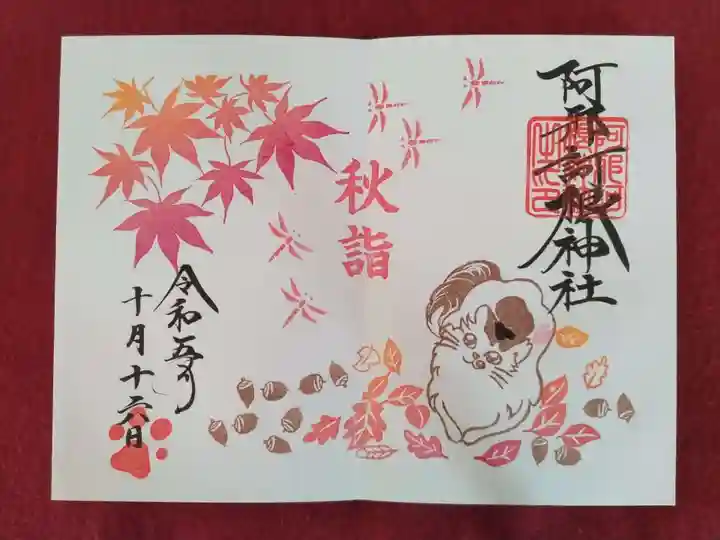 阿那訶根神社
秋詣
令和五年
十月十六日